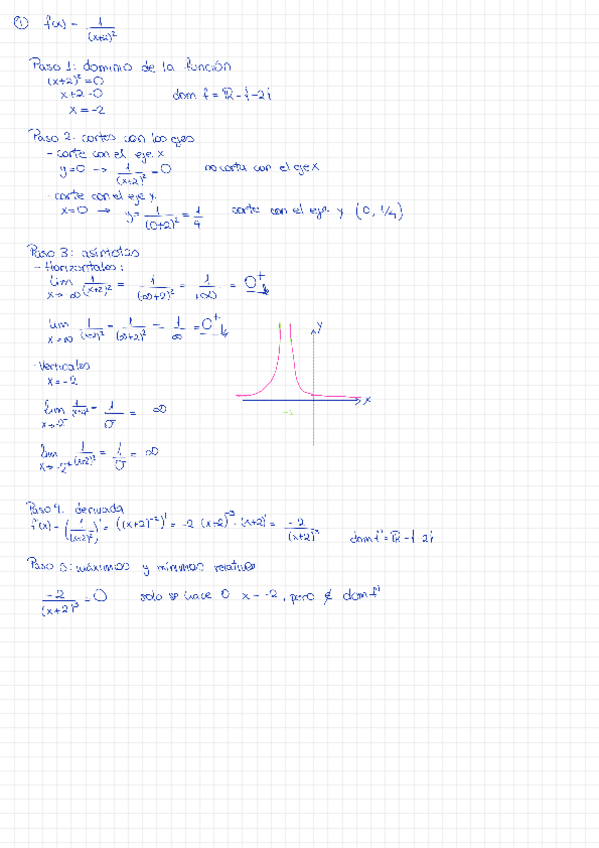 ① f(x) = 1/(x+2)²
Paso 1: dominio de la función
(x+2)² = 0
x+2 = 0 dom f = ℝ - {-2}
x = -2
Paso 2. cortes con los ejes
- corte con el eje x
y=0 → 1/(x+2)² = 0 no corta con el eje x
- corte con el eje y.
x=0 → y = 1/(0+2)² = 1/4 corte con el eje y (0, 1/4)
Paso 3: asíntotas
- Horizontales:
lim x→∞ 1/(x+2)² = 1/(∞+2)² = 1/∞ = 0⁺
lim x→∞ 1/(x+2)² = 1/(∞+2)² = 1/∞ = 0⁺
y
- Verticales
x = -2
x
-2
lim x→-2⁻ 1/(x+2)² = 1/0 = ∞
lim x→-2⁺ 1/(x+2)² = 1/0 = ∞
Paso 4. derivada
f'(x) = (1/(x+2)²)' = ((x+2)⁻²)' = -2 (x+2)⁻³ · (x+2)' = -2/(x+2)³ dom f' = ℝ - {-2}
Paso 5: máximos y mínimos relativos
-2/(x+2)³ = 0 solo se hace 0 x = -2, pero ∉ dom f'